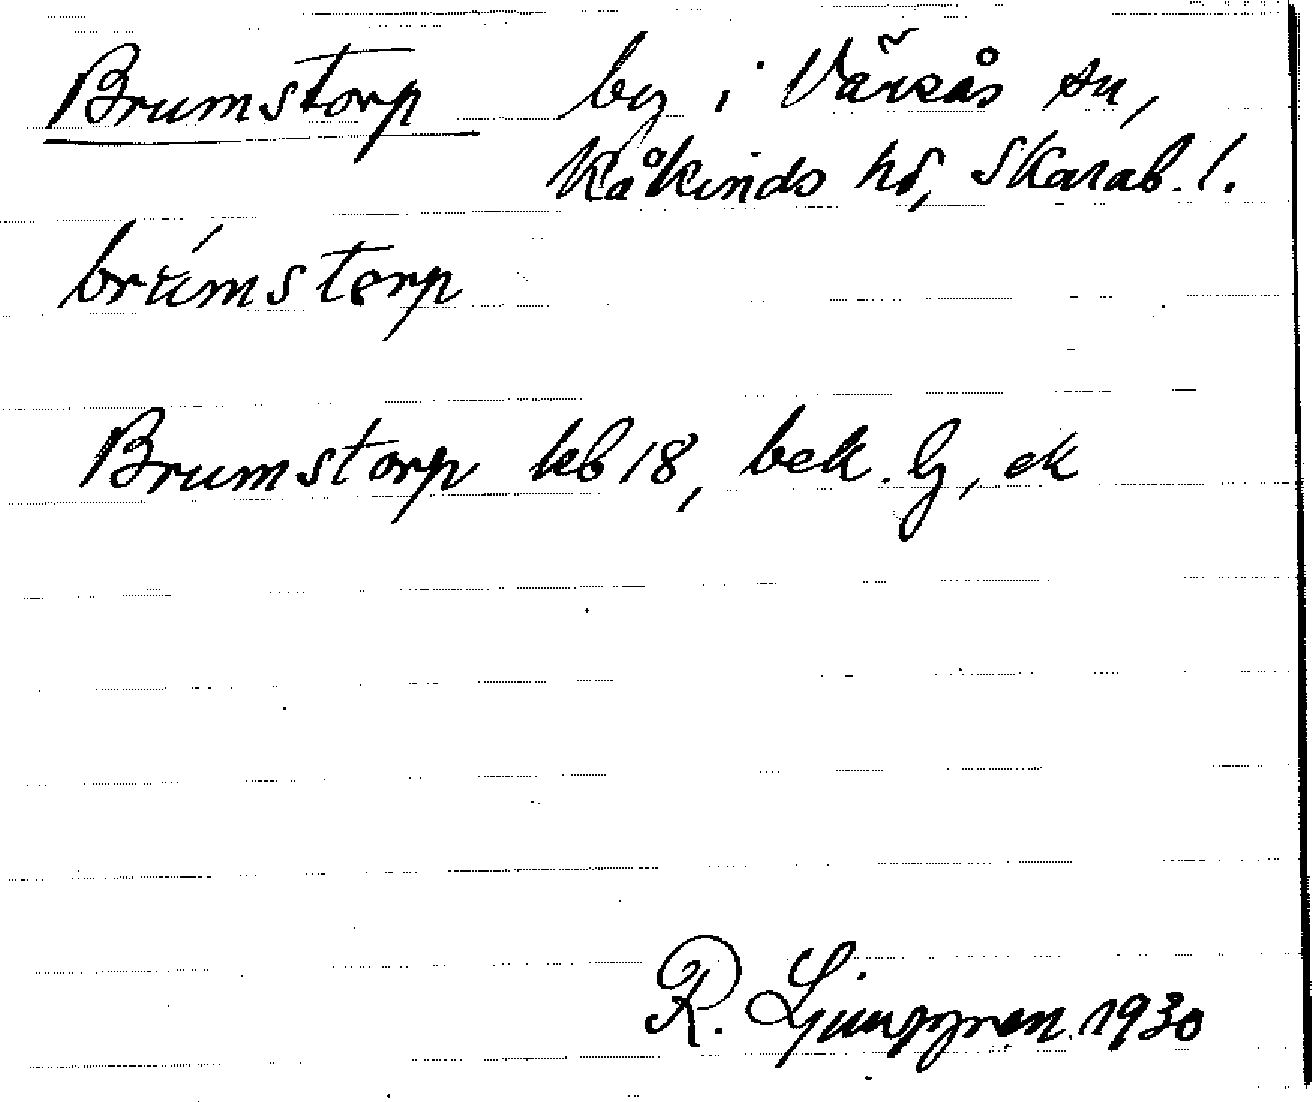 Brumstorp by i Värsås sn,
Kåkinds hd, Skarab. l.
brúmstɵrp
Brumstorp kb 18, bek. G, ek
R. Ljunggren 1930